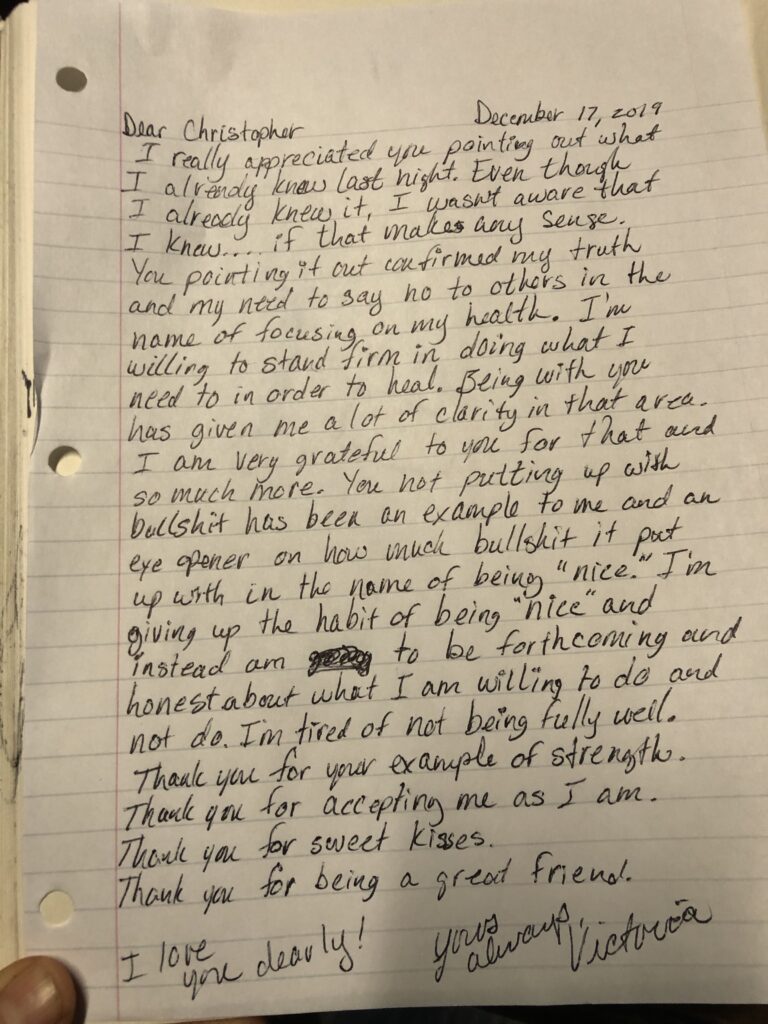 December 17, 2019
Dear Christopher
I really appreciated you pointing out what
I already knew last night. Even though
I already knew it, I wasn't aware that
I knew.... if that makes any sense.
You pointing it out confirmed my truth
and my need to say no to others in the
name of focusing on my health. I'm
willing to stand firm in doing what I
need to in order to heal. Being with you
has given me a lot of clarity in that area.
I am very grateful to you for that and
so much more. You not putting up with
bullshit has been an example to me and an
eye opener on how much bullshit it put
up with in the name of being "nice." I'm
giving up the habit of being "nice" and
instead am to be forthcoming and
honest about what I am willing to do and
not do. I'm tired of not being fully well.
Thank you for your example of strength.
Thank you for accepting me as I am.
Thank you for sweet kisses.
Thank you for being a great friend.
I love
you dearly!
yours
always,
Victoria